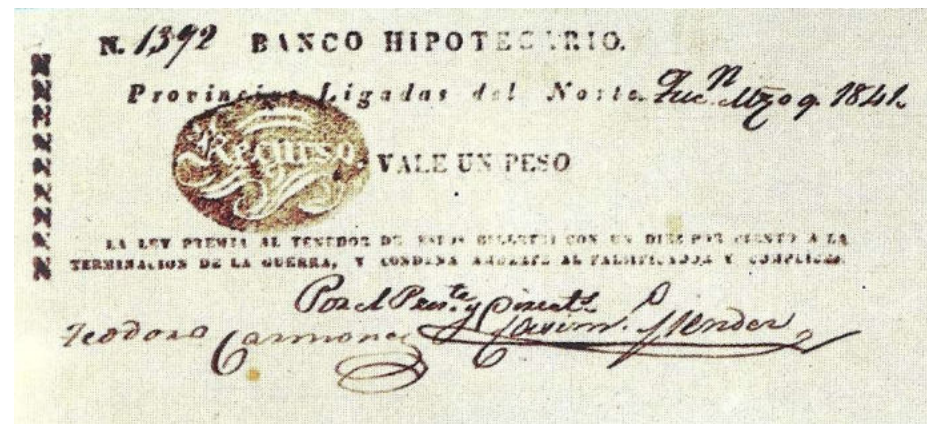 N. 1392 BANCO HIPOTECARIO.
Provincias Ligadas del Norte. Tucn. Mzo 9 1841
Recurso
VALE UN PESO
LA LEY PREMIA AL TENEDOR DE ESTOS BILLETES CON UN DIEZ POR CIENTO A LA
TERMINACION DE LA GUERRA, Y CONDENA AL FALSIFICADOR Y COMPLICES.
Por el Preste. y
Teodoro Carmona Mendez